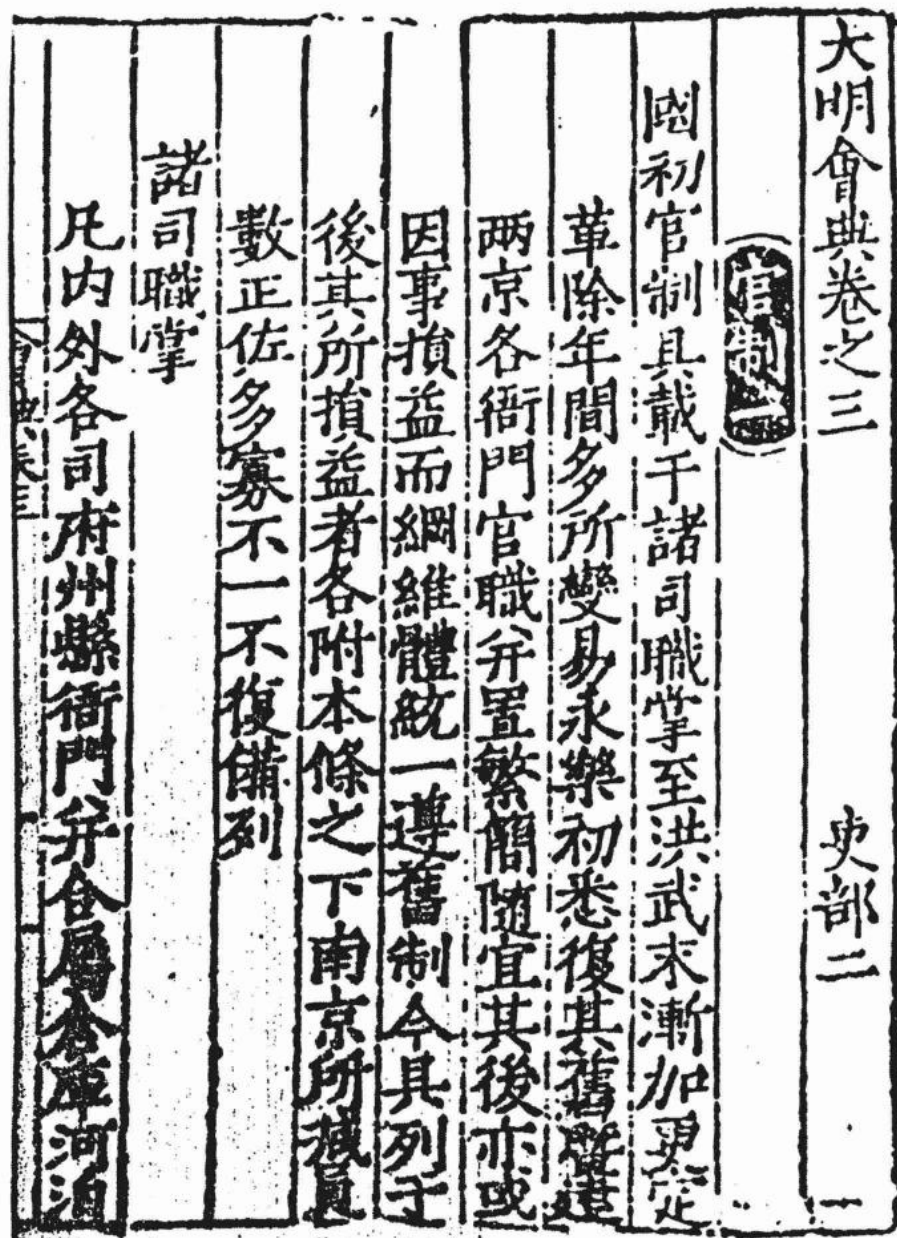 大明會典卷之三 吏部二 一
官制一
國初官制具載于諸司職掌至洪武末漸加更定
革除年間多所變易永樂初悉復其舊曁建
兩京各衙門官職并置繁簡隨宜其後亦或
因事損益而綱維體統一遵舊制今具列于
後其所損益者各附本條之下南京所減員
數正佐多寡不一不復備列
諸司職掌
凡内外各司府州縣衙門并合屬倉庫河泊